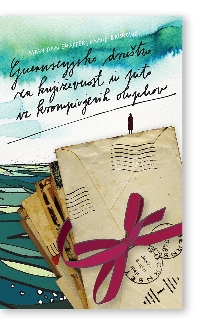 MARY ANN SHAFFER, ANNIE BARROWS
Guernseyjsko društvo
za književnost in pito
iz krompirjevih olupkov